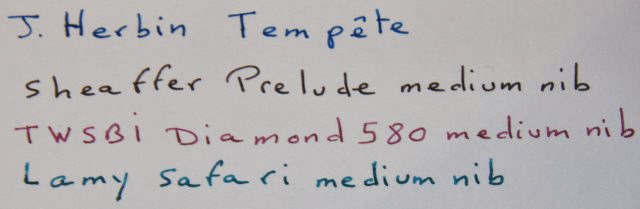 J. Herbin Tempête
Sheaffer Prelude medium nib
TWSBI Diamond 580 medium nib
Lamy Safari medium nib